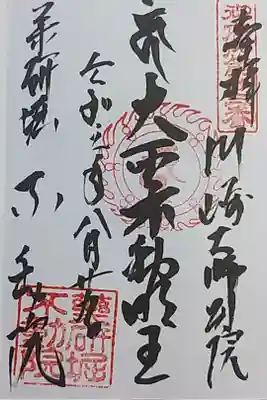 奉拝
川崎大師別院
大聖不動明王
令和 年八月廿 日
薬研堀
不動院
薬研堀
不動院